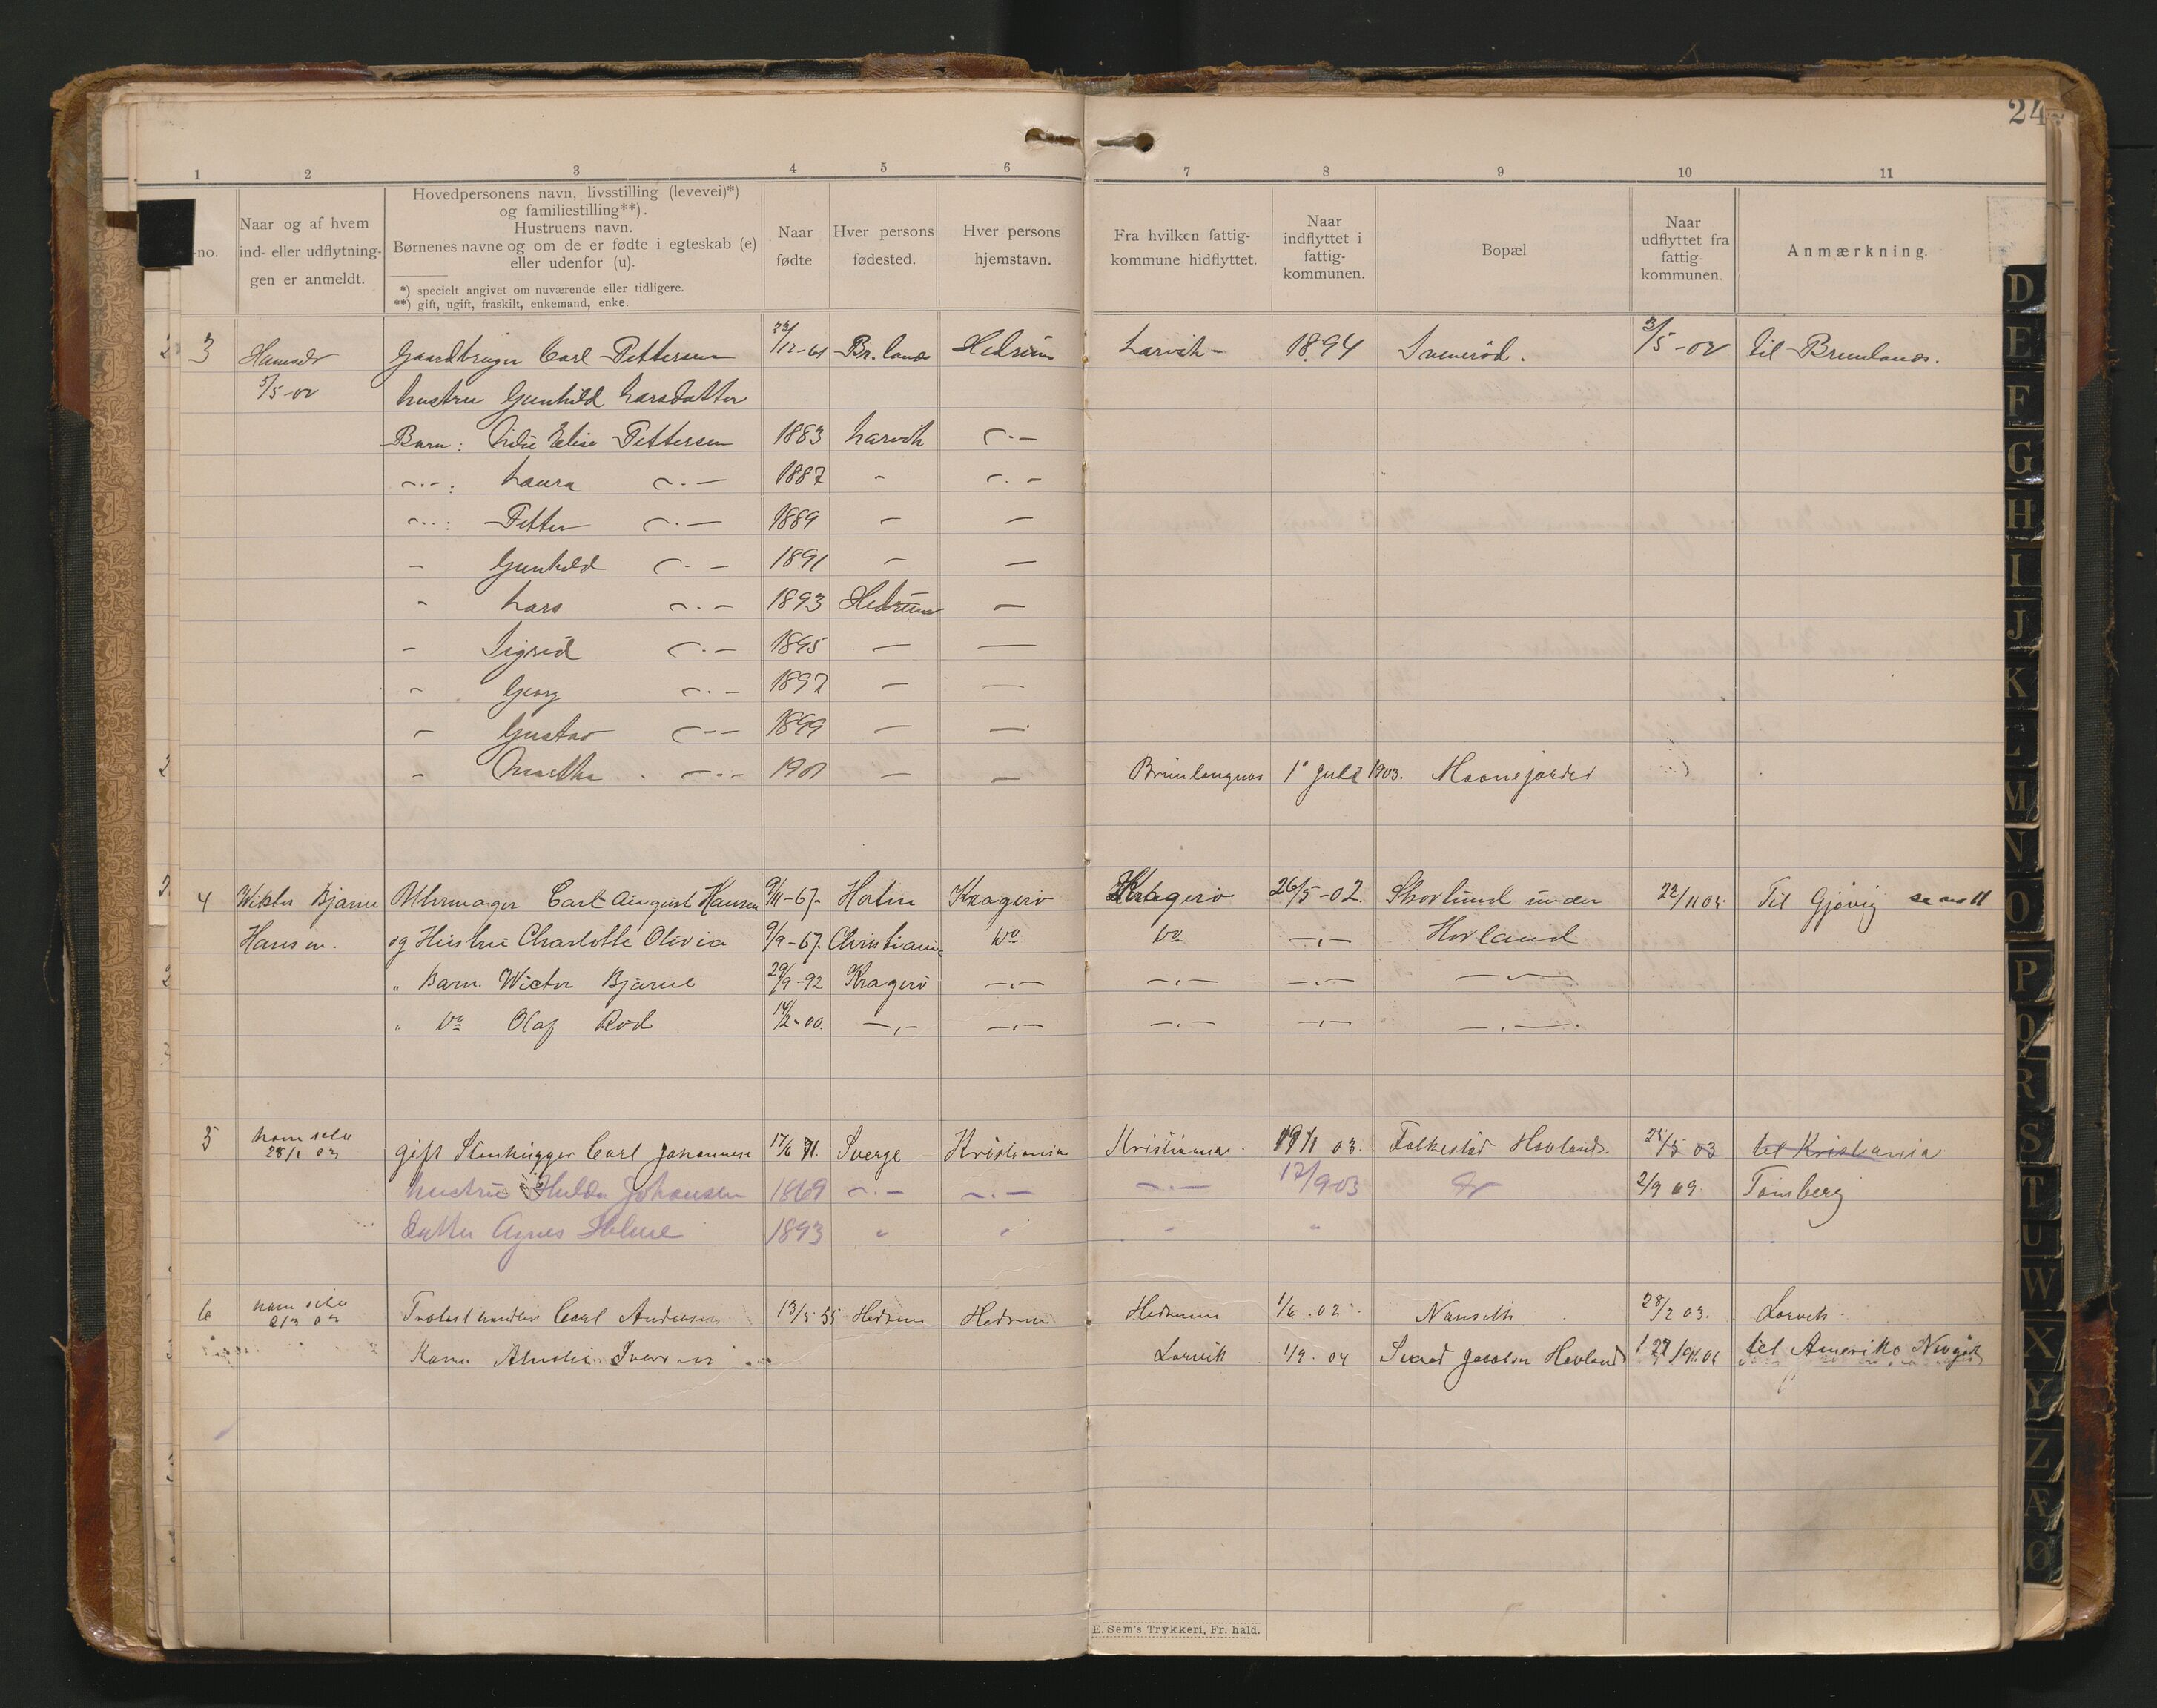 24
1 2 3 4 5 6 7 8 9 10 11
-no.
Naar og af hvem
ind- eller udflytning-
gen er anmeldt.
Hovedpersonens navn, livsstilling (levevei)*)
og familiestilling**).
Hustruens navn.
Børnenes navne og om de er fødte i egteskab (e)
eller udenfor (u).
*) specielt angivet om nuværende eller tidligere.
**) gift, ugift, fraskilt, enkemand, enke.
Naar
fødte
Hver persons
fødested.
Hver persons
hjemstavn.
Fra hvilken fattig-
kommune hidflyttet.
Naar
indflyttet i
fattig-
kommunen.
Bopæl
Naar
udflyttet fra
fattig-
kommunen.
Anmærkning.
3 Gaardbruger Carl Pettersen /12-61 Br.lanes Hedrum Larvik - 1894 3/5-02 til Brunlanes.
5/5-02 hustru Gunhild Larsdatter
Barn: Elise Pettersen 1883 Larvik -.-
-.-: Laura -.- 1887 - -.-
-.-: Petter -.- 1889 - -
- Gunhild -.- 1891 - -
- Lars -.- 1893 Hedrum -
- Sigrid -.- 1895 - -
- Georg -.- 1897 - -
- Gustav -.- 1899 - -
- Martha -.- 1901 - - 1903.
4 Bjarne Uhrmager Carl August Hansen 9/11-67- Kragerø Kragerø 26/5-02. under 22/11 04 Til Gjøvig
Hansen. og Hustru Charlotte Olivia 9/9-67. Christiania do do -,- Hovland
" Barn. Wictor Bjarne 29/9-92 Kragerø -,- -,- -,- -,-
" do Olaf Rød 14/2-00. -,- -,- -,- -,- -,-
5 ham selv 28/1 03 gift Stenhugger Carl Johannesen 17/6 71. Sverge Kristiania Kristiania. 03. Folkestad Hovland. 25/5 03 til Kristiania
hustru Hulda Johansen 1869 -.- -.- -.- 17/9 03 2/9 09. Tønsberg
datter Agnes 1893 " " " "
6 ham selv 2/3 03 Carl Andersen 13/5 55 Hedrum Hedrum Hedrum 1/6. 02. Nanseth 28/2 03. Larvik.
Iversen Larvik 1/9. 04 Jacobsen Hovland til Amerika
E. Sem's Trykkeri, Fr. hald.
D
E
F
G
H
I
J
K
L
M
N
O
P
Q
R
S
T
U
W
X
Y
Z
Æ
Ø